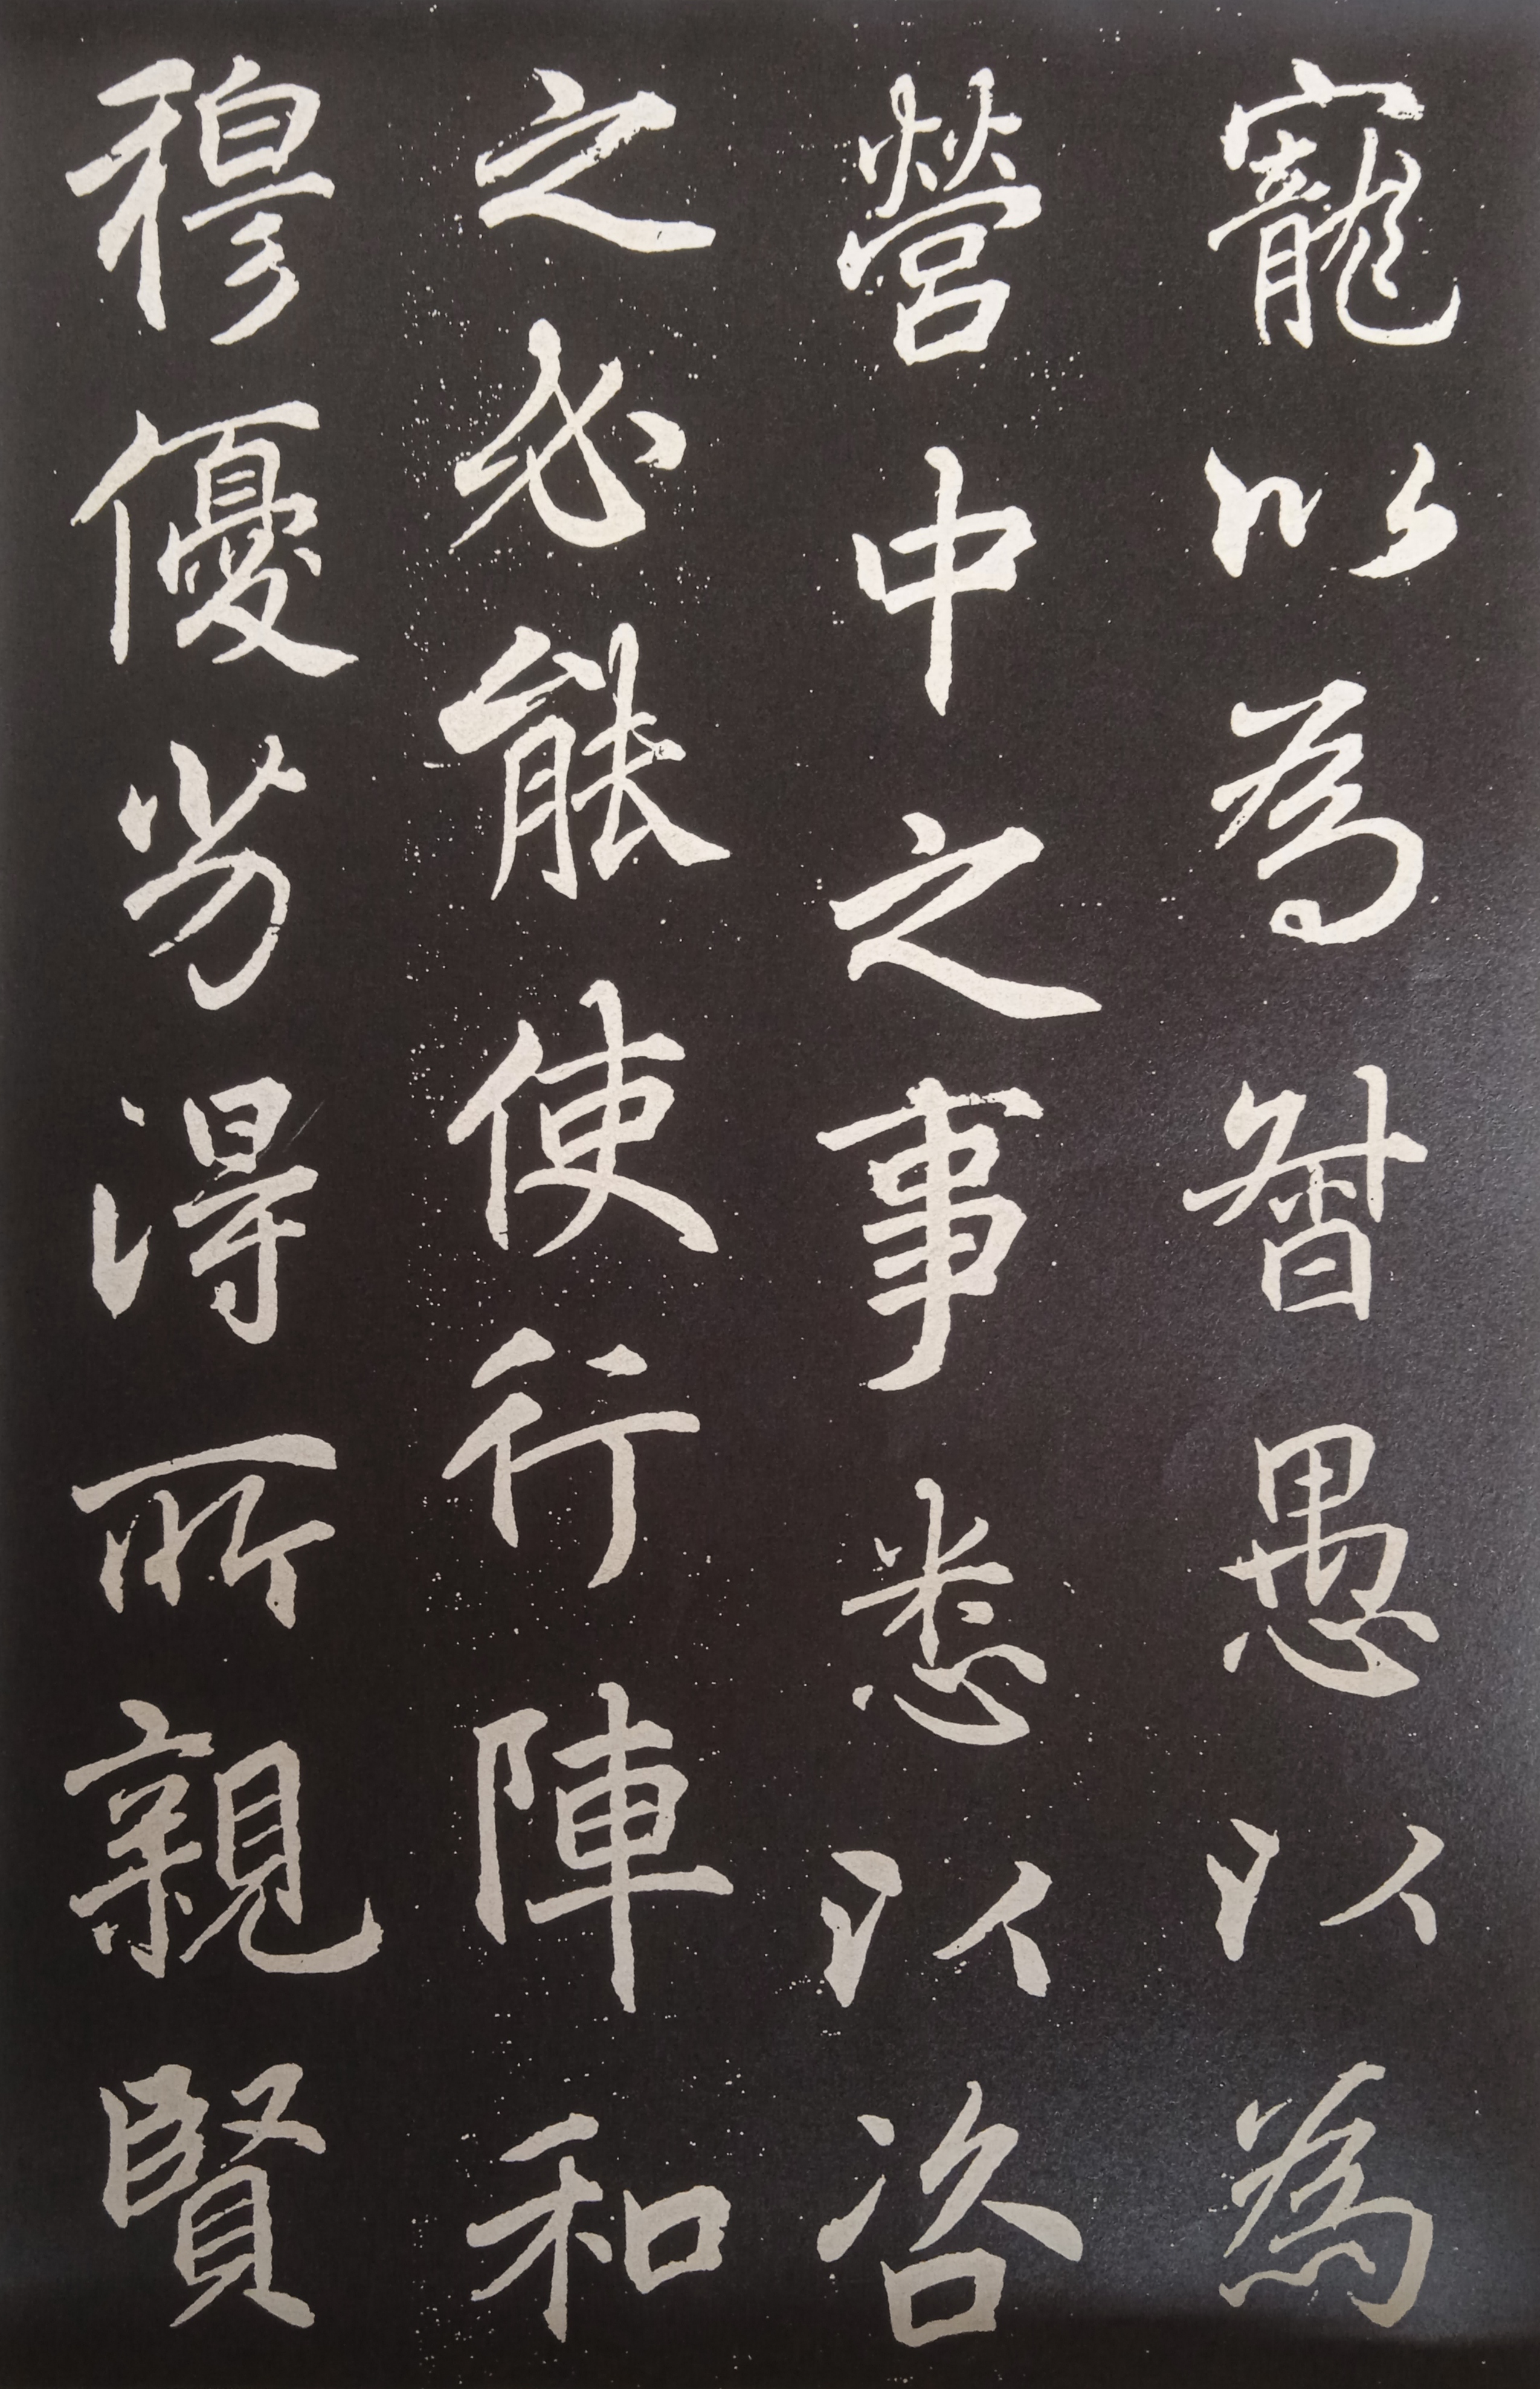 寵以為智愚以為
營中之事悉以咨
之必能使行陣和
穆優劣得所親賢